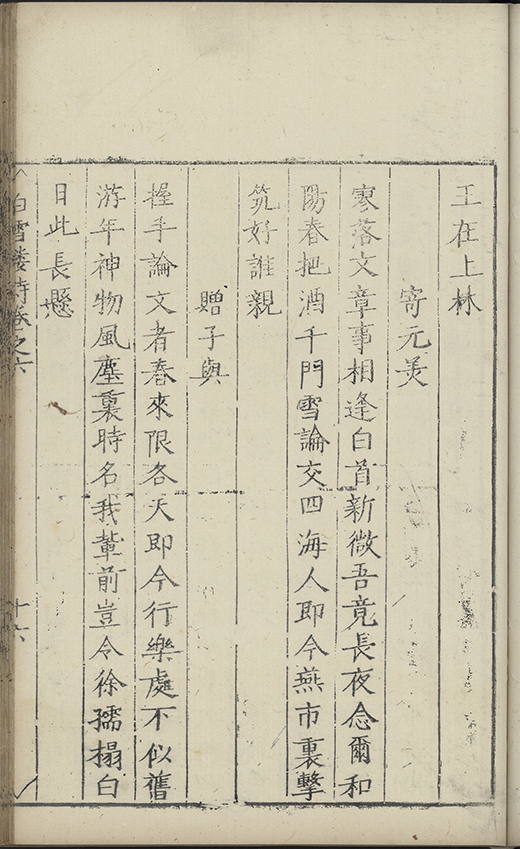 王在上林
寄元美
寥落文章事相逢白首新微吾竟長夜念爾和
陽春把酒千門雪論交四海人即今燕市裏擊
筑好誰親
贈子與
握手論文者春來限各天即今行樂處不似舊
游年神物風塵裏時名我輩前豈令徐孺榻白
日此長懸
白雪樓詩卷之六
十六